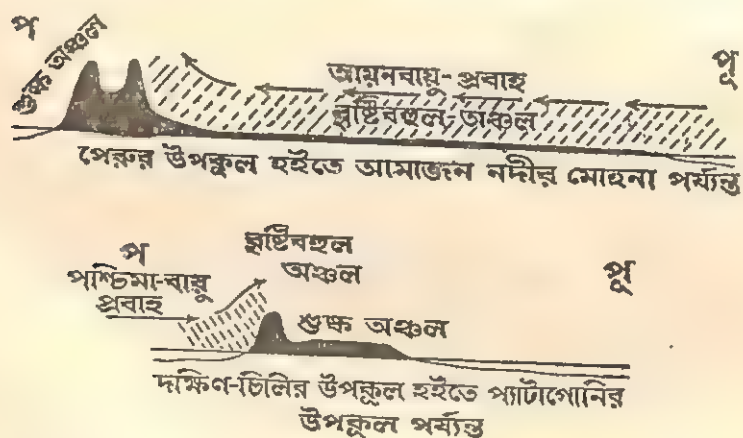 প
পূ
শুষ্ক অঞ্চল
আয়নবায়ু-প্রবাহ
বৃষ্টিবহুল-অঞ্চল
পেরুর উপকূল হইতে আমাজন নদীর মোহনা পর্য্যন্ত
প
পূ
বৃষ্টিবহুল
অঞ্চল
পশ্চিমা-বায়ু
প্রবাহ
শুষ্ক অঞ্চল
দক্ষিণ-চিলির উপকূল হইতে প্যাটাগোনির
উপকূল পর্য্যন্ত